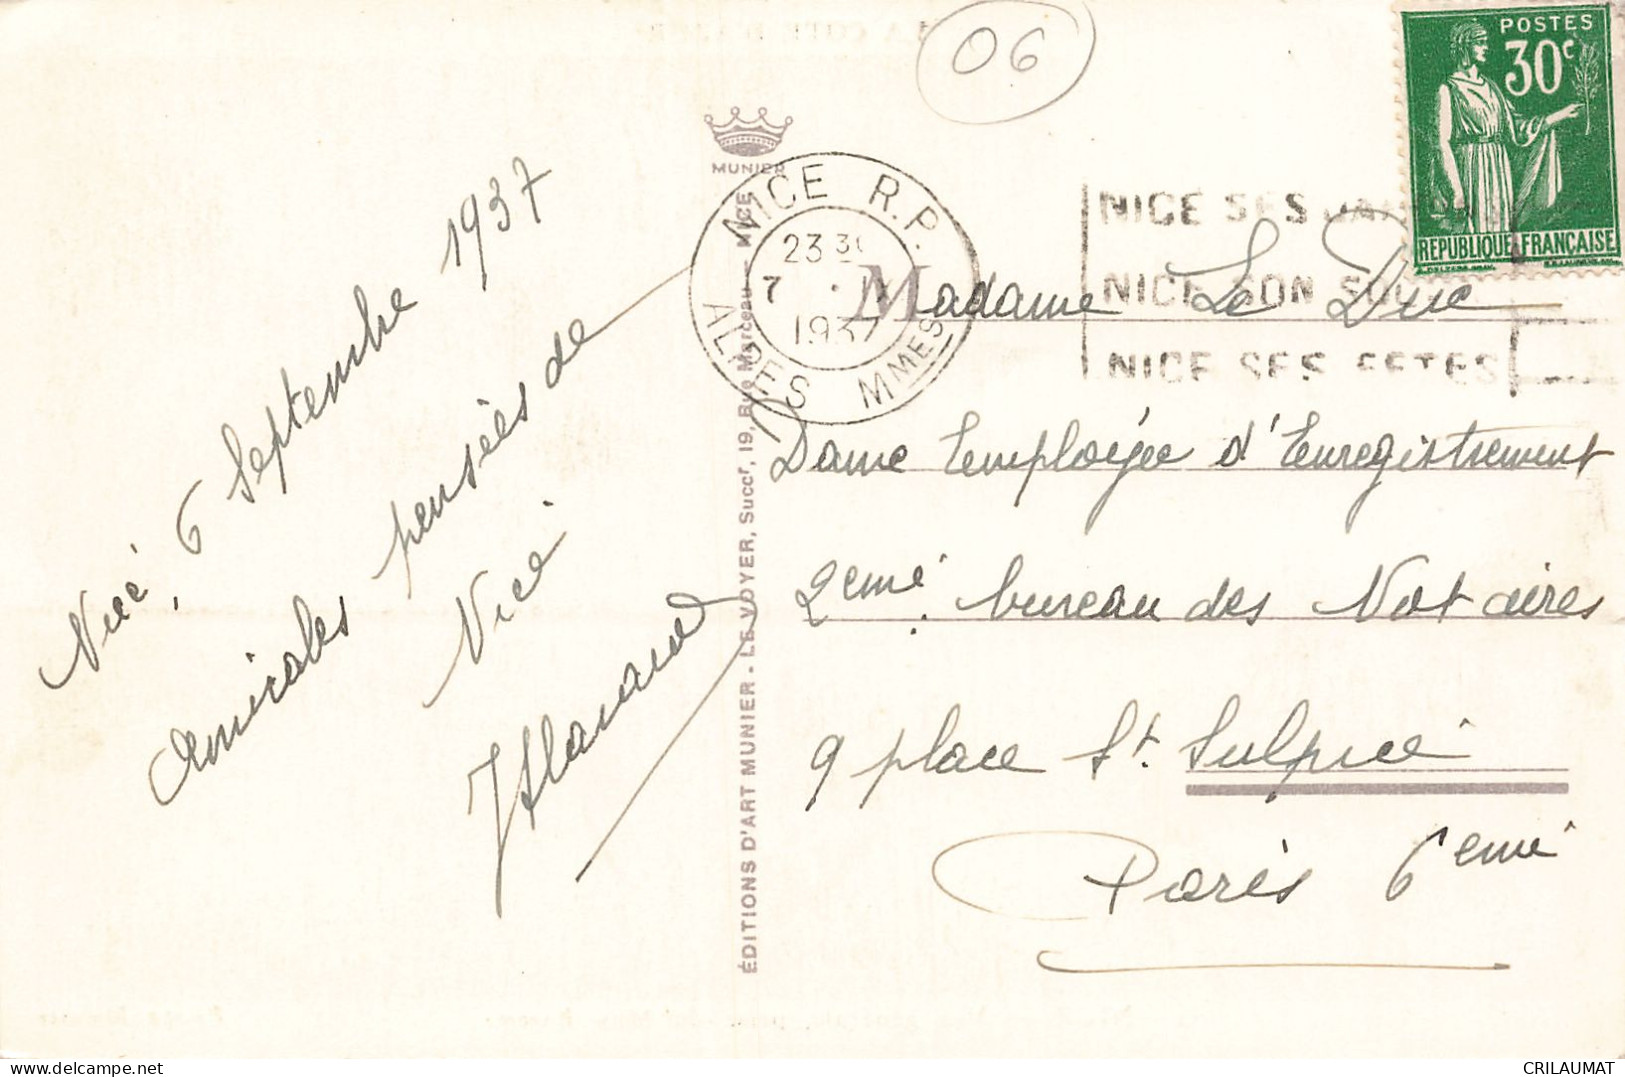 06
POSTES
30c
REPUBLIQUE FRANÇAISE
MUNIER
NICE R.P.
23 30
7 · IX
1937
ALPES MMES
NICE SES
NICE SON
NICE SES FETES
ÉDITIONS D'ART MUNIER - LE VOYER, Succr, 19, Rue Marceau - NICE
Nice, 6 Septembre 1937
Amicales pensées de
Nice
Madame Le Duc
Dame Employée d'Enregistrement
2eme bureau des Notaires
9 place St. Sulpice
Paris 6eme
CRILAUMAT